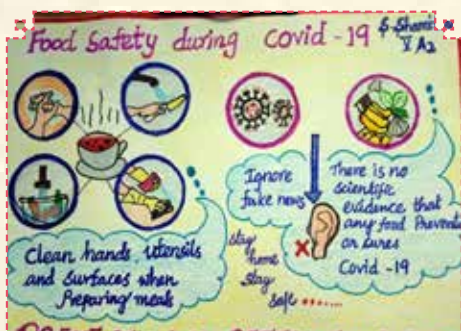 Food Safety during Covid-19
V A2
Clean hands, utensils
and surfaces when
Preparing meals
Ignore
fake news
There is no
scientific
evidence that
any food Prevents
or cures
Covid-19
Stay
home
Stay
Safe ......